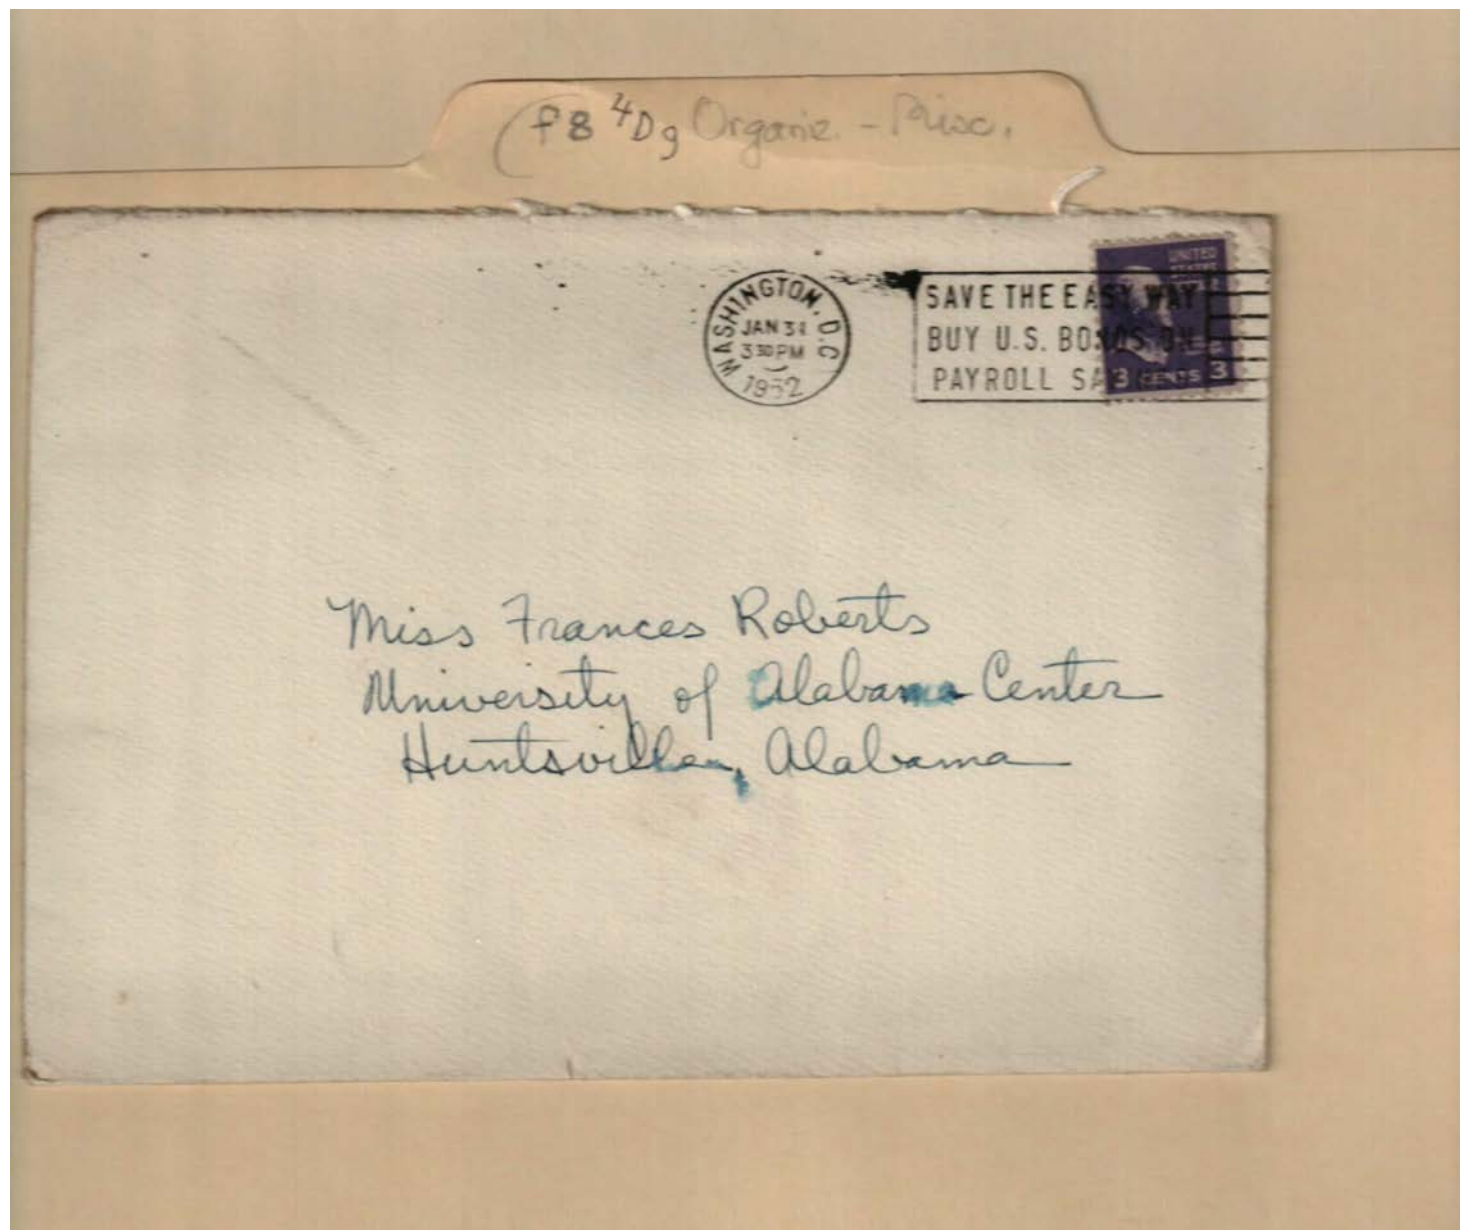 f8 4Dg Organiz. - Misc.
WASHINGTON, D.C.
JAN 31
3 30 PM
1952
SAVE THE EASY WAY
BUY U.S. BONDS ON
PAYROLL SA
UNITED
STATES
3 CENTS 3
Miss Frances Roberts
University of Alabama Center
Huntsville, Alabama